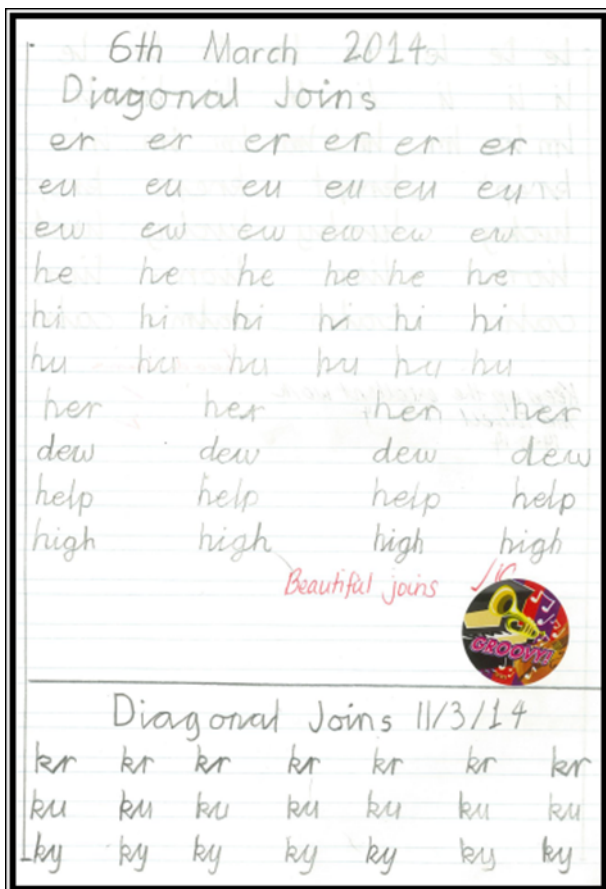 6th March 2014
Diagonal Joins
er er er er er er
eu eu eu eu eu eu
ew ew ew ew ew ew
he he he he he he
hi hi hi hi hi hi
hu hu hu hu hu hu
her her her her
dew dew dew dew
help help help help
high high high high
Beautiful joins
GROOVY!
Diagonal Joins 11/3/14
kr kr kr kr kr kr kr
ku ku ku ku ku ku ku
ky ky ky ky ky ky ky